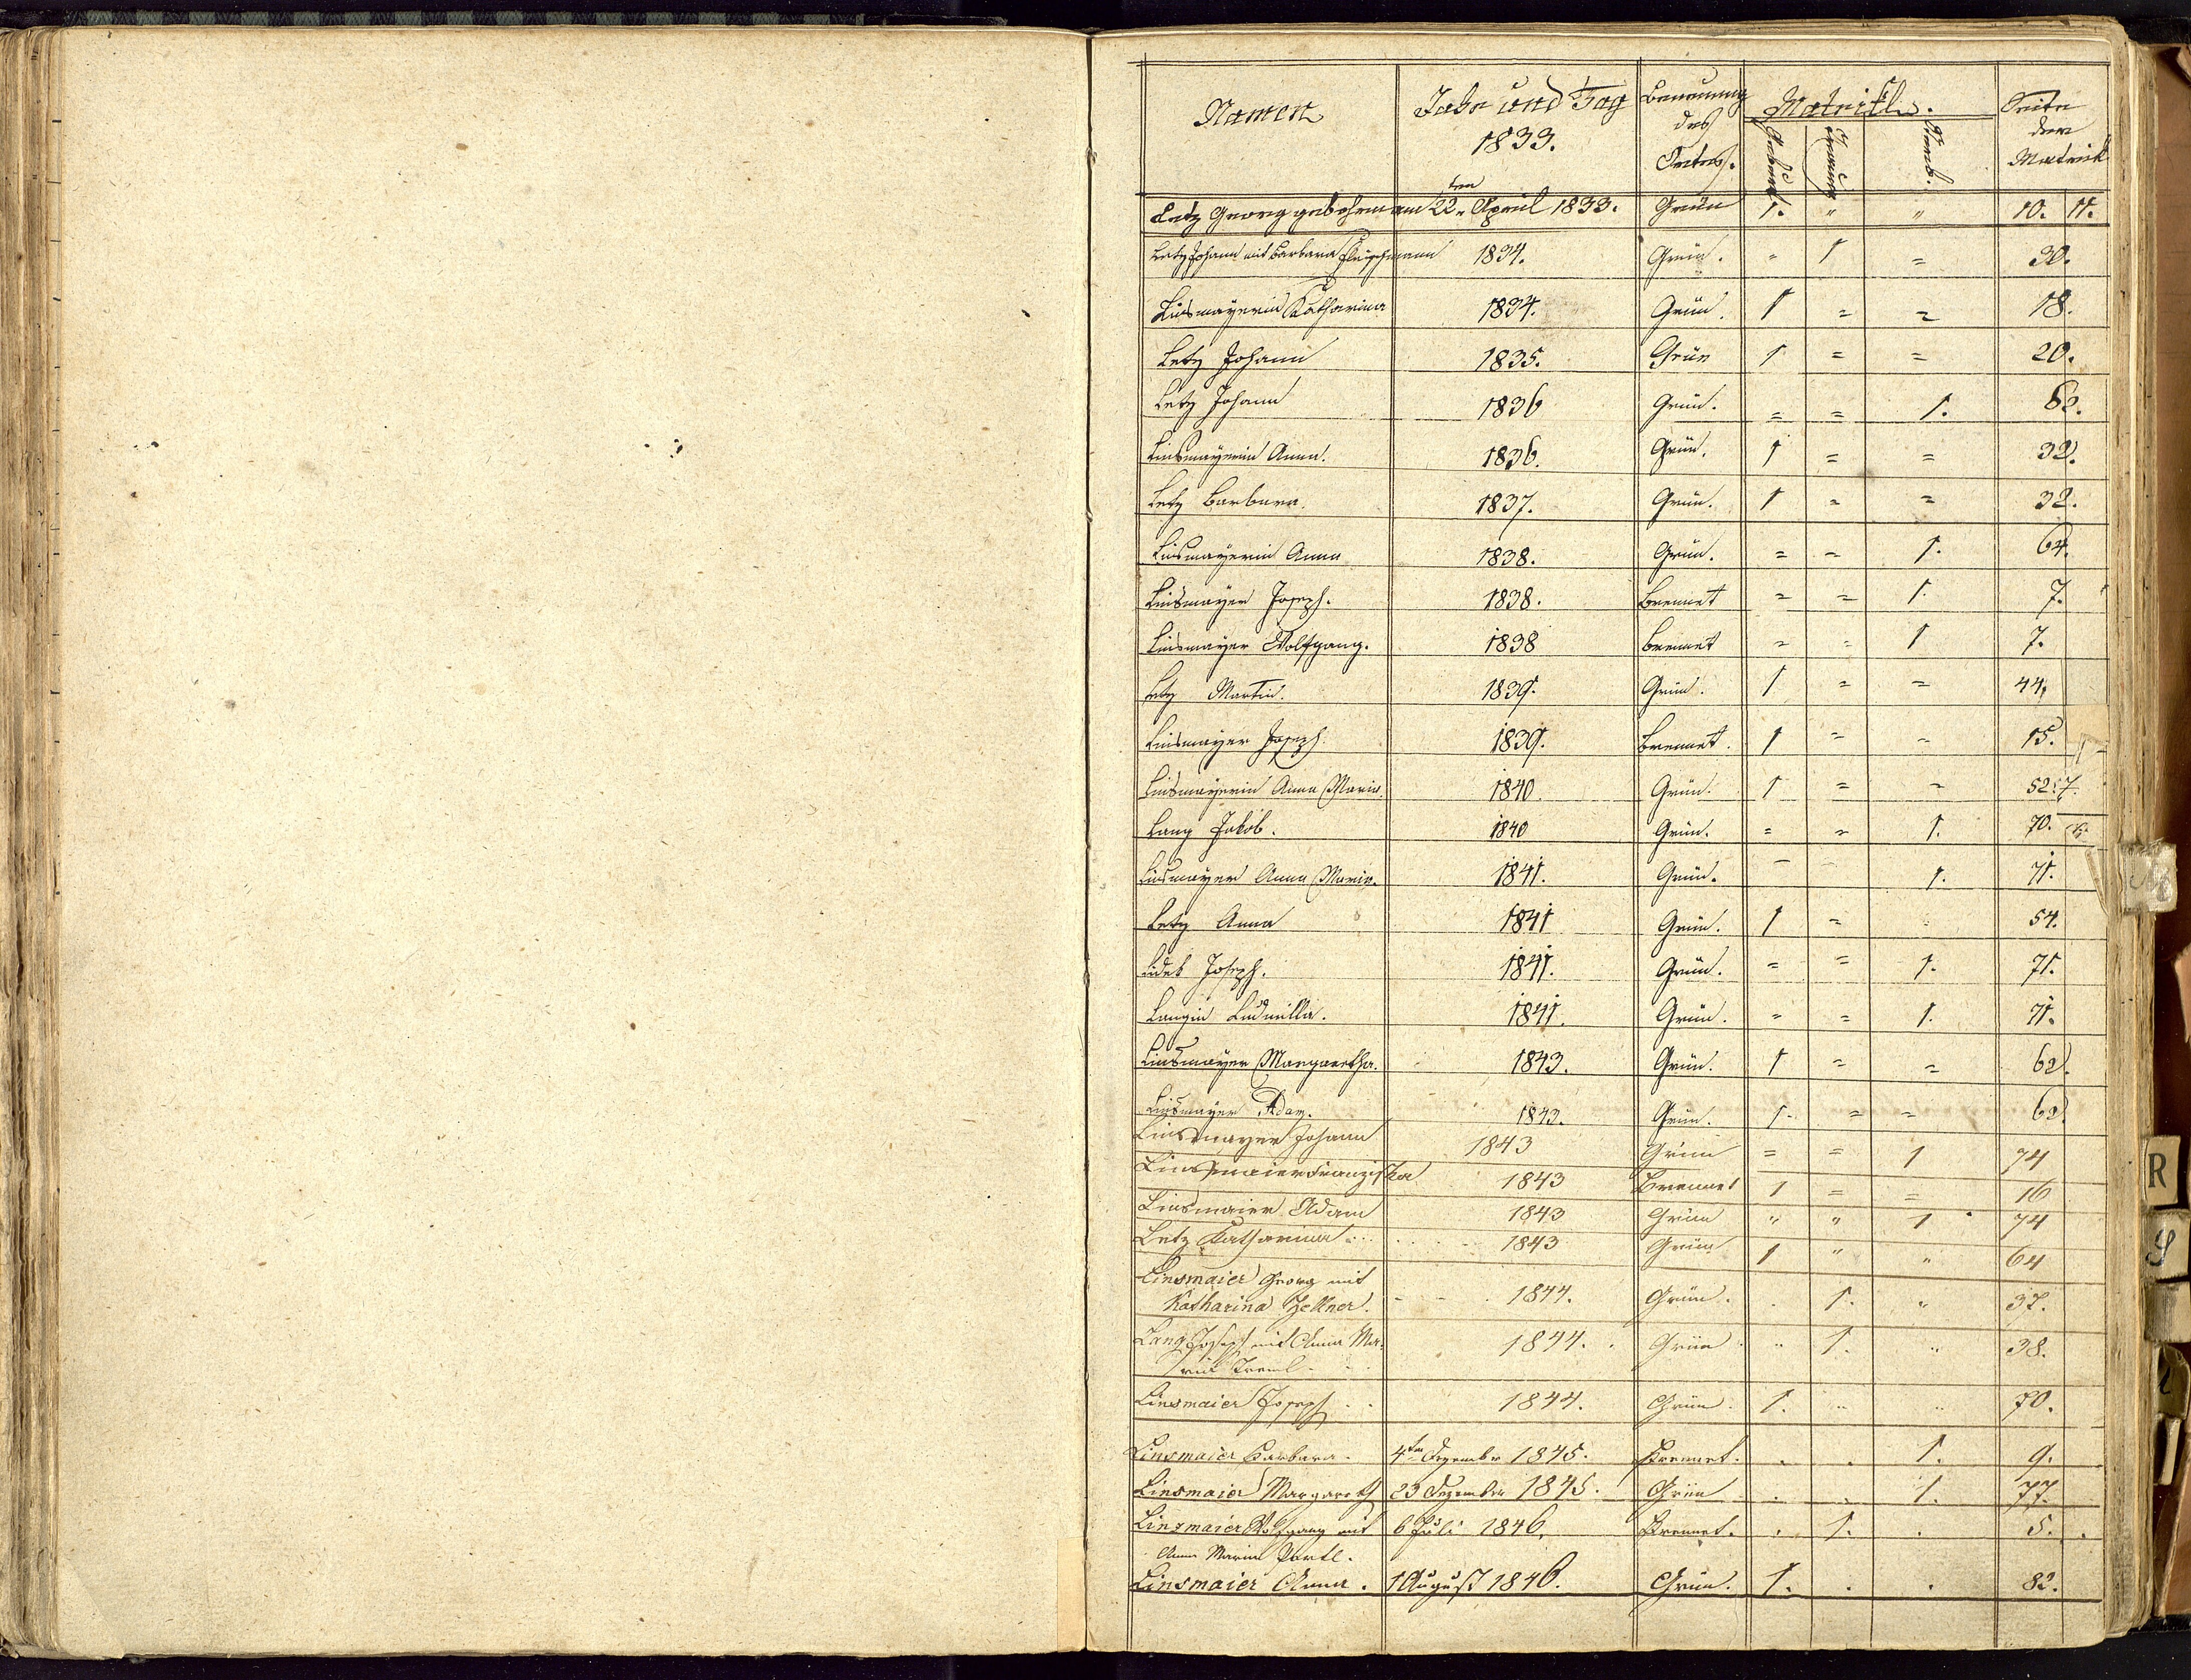 Namen Jahr und Tag 1833. Benennung des Ortes. Matrikl. Geburt Trauung Sterb. Seite der Matrick
Letz Georg gebohren am 22ten April 1833. Grün 1. " " 10. 11.
Letz Johann mit Barbara Fleischmann 1834. Grün. " 1 = 30.
Linsmayerin Katharina 1834. Grün. 1 = = 18.
Letz Johann 1835. Grün 1 = = 20.
Letz Johann 1836 Grün. = = 1.
Linsmayerin Anna. 1836. Grün. 1 = = 32.
Letz Barbara. 1837. Grün. 1 = = 32.
Linsmayerin Anna 1838. Grün. = = 1. 64.
Linsmayer Joseph. 1838. Brennet = = 1. 7.
Linsmayer Wolfgang. 1838 Brennet = = 1 7.
Letz Martin. 1839. Grün. 1 = = 44.
Linsmayer Joseph. 1839. Brennet. 1 = = 15.
Linsmayerin Anna Maria. 1840. Grün. 1 = = 52. 7.
Lang Jakob. 1840 Grün. = = 1. 70.
Linsmayer Anna Maria. 1841. Grün. – – 1. 71.
Letz Anna 1841 Grün. 1 = = 54.
Joseph. 1841. Grün. = = 1. 71.
Langin Ludmilla. 1841. Grün. = = 1. 71.
Linsmayer Margaretha. 1843. Grün. 1 = = 62.
Linsmayer Adam. 1843. Grün. 1. = = 62.
Linsmayer Johann 1843 Grün = = 1 74
Linsmaier Franziska 1843 Brennet 1 = = 16
Linsmaier Adam 1843 Grün " " 1 74
Letz Katharina 1843 Grün 1 " " 64
Linsmaier Georg mit
Katharina Zellner. 1844. Grün. . 1. " 37.
Lang Joseph mit Anna Ma-
ria Treml. 1844. Grün " 1. " 38.
Linsmaier Joseph 1844. Grün. 1. " " 70.
Linsmaier Barbara. 4ten Dezember 1845. Brennet. . . 1. 9.
Linsmaier Margareth 23 Dezember 1845. Grün . . 1. 77.
Linsmaier Wolfgang mit 6 Juli 1846. Brennet. . 1. . 5.
Anna Maria
Linsmaier Anna. 1 August 1846. Grün. 1. . . 82.
R
S